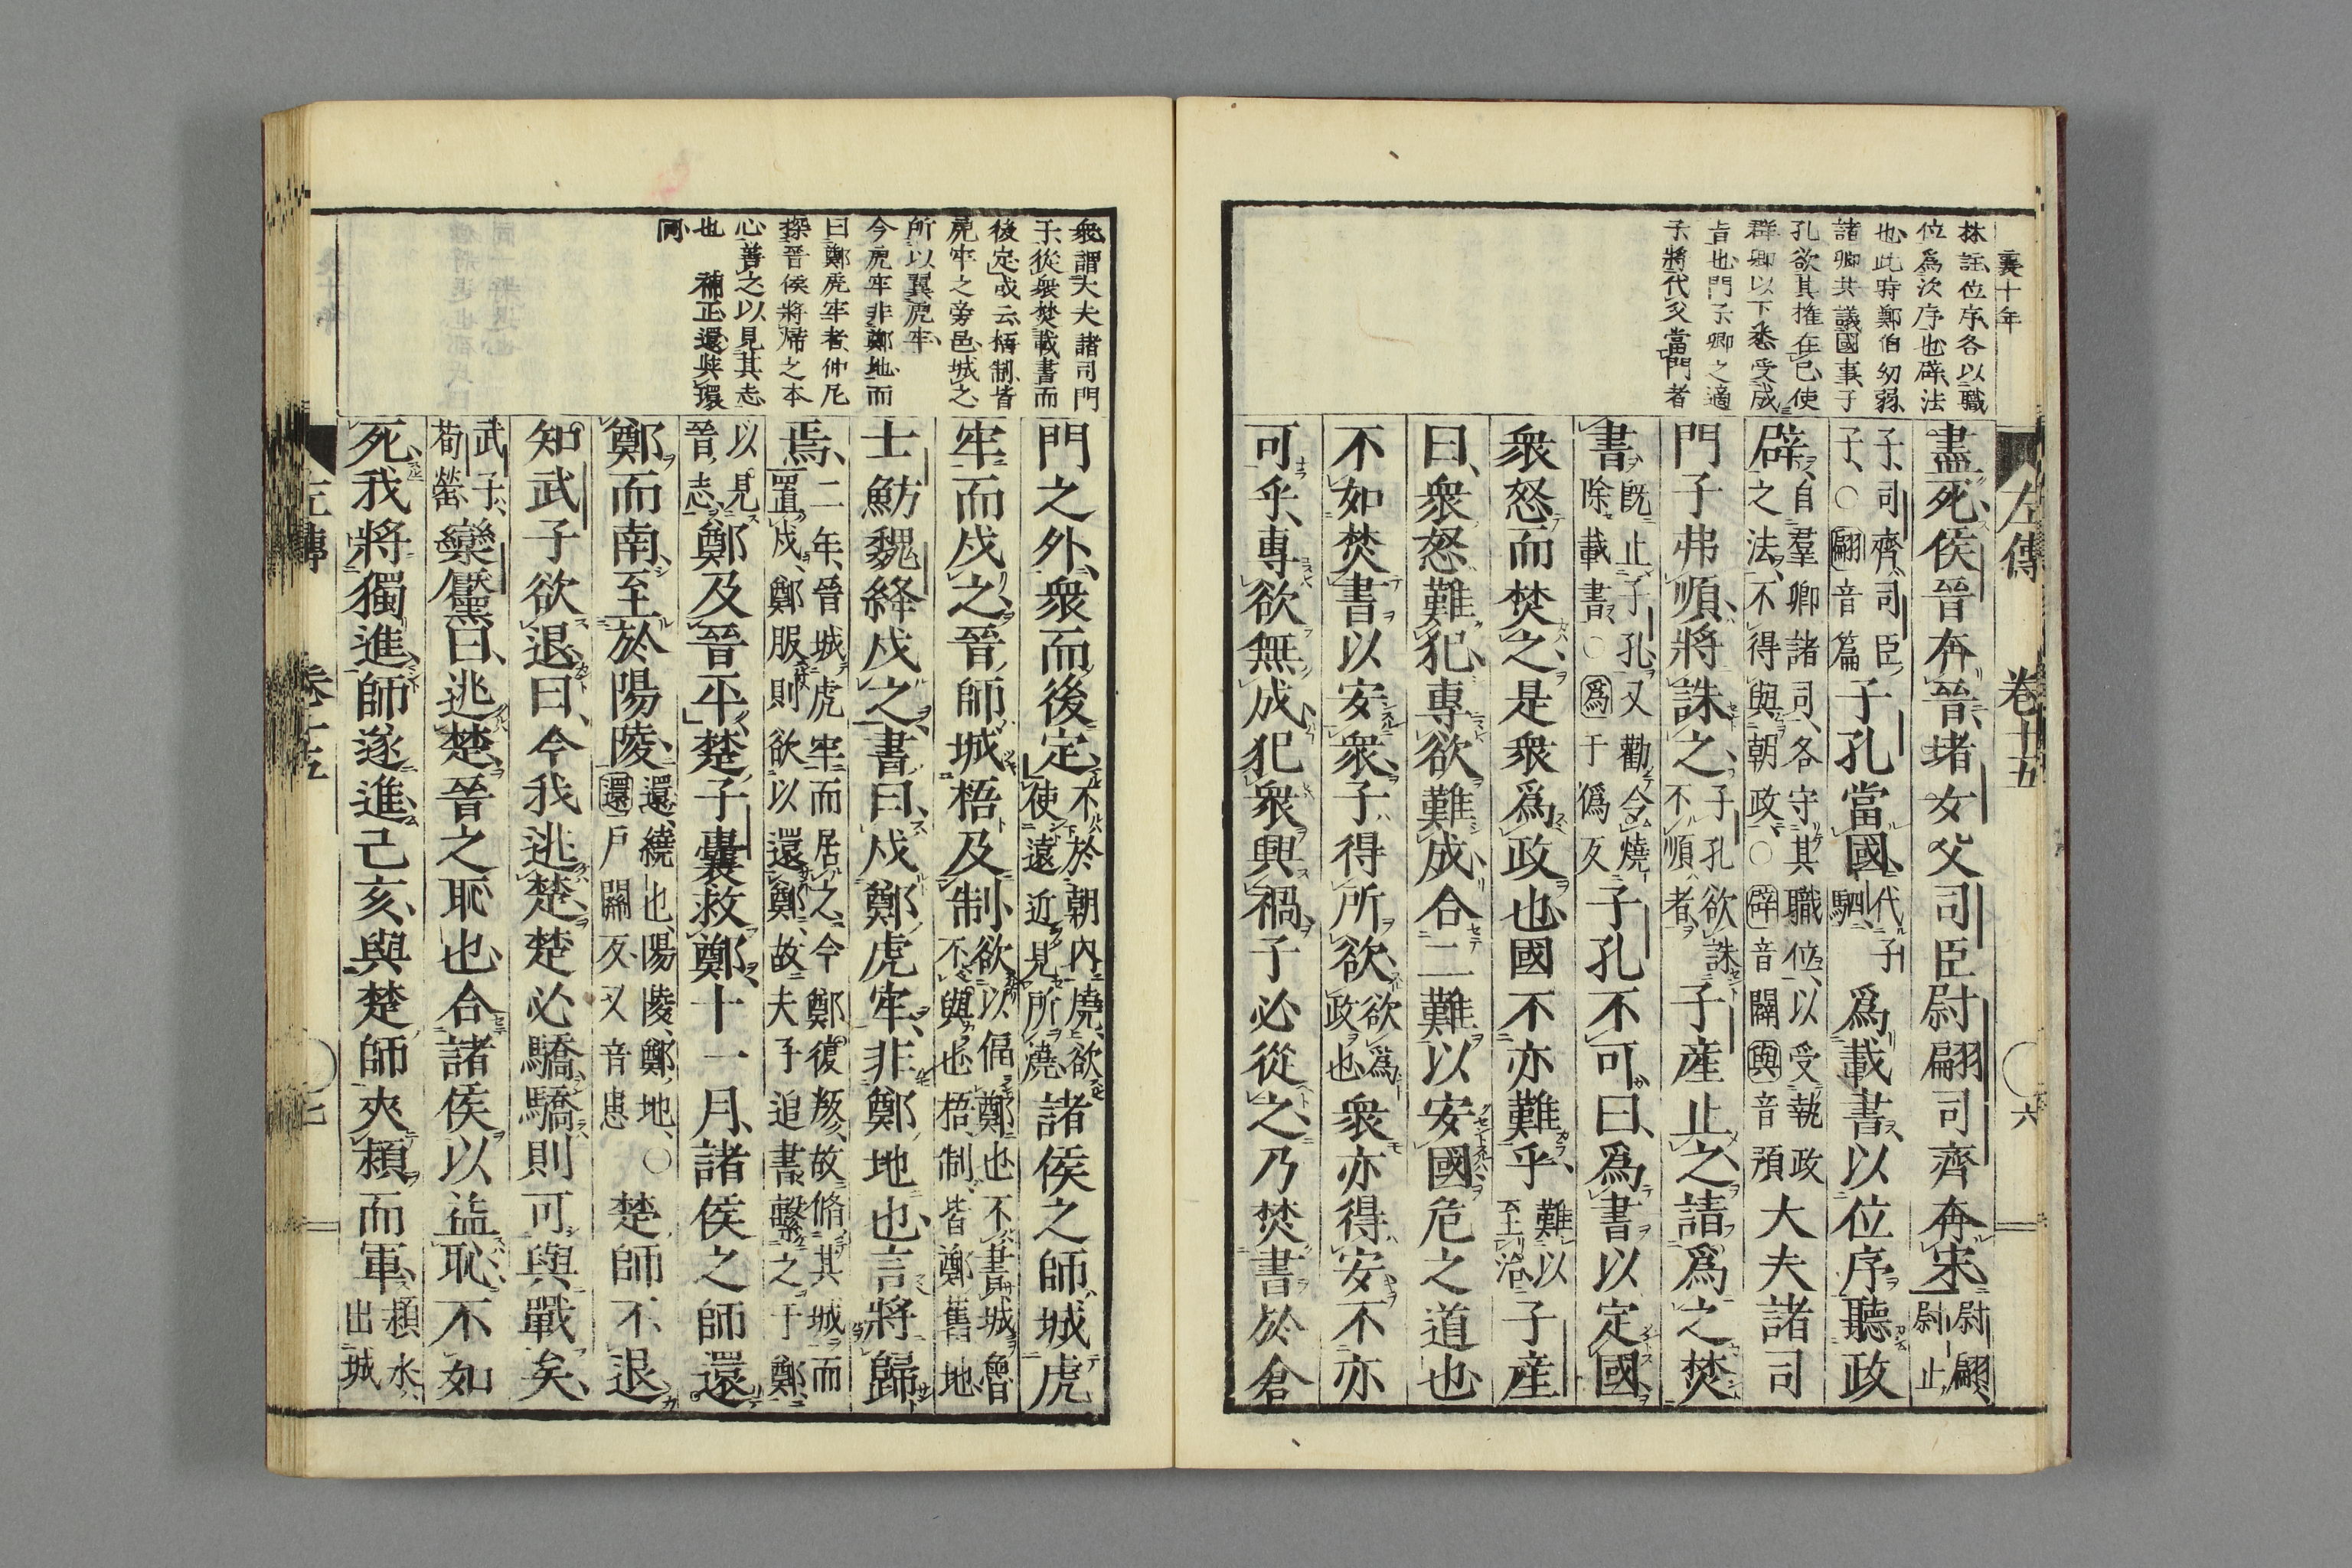 襄十年
左傳 卷十五 ○六
林註位序各以職
位爲次序也辟法
也此時鄭伯幼弱
諸卿共議國事子
孔欲其權在己使
群卿以下悉受成
旨也門子卿之適
子將代父當門者
盡死侯晉奔晉堵女父司臣尉翩司齊奔宋尉翩尉止
子司齊司臣子○翩音篇子孔當國代子駟爲載書以位序聽政
辟自羣卿諸司各守其職位以受執政之法不得與朝政○辟音闢與音預大夫諸司
門子弗順將誅之子孔欲誅不順者子產止之請爲之焚
書旣止子孔又勸令燒除載書○爲于僞反子孔不可曰爲書以定國
衆怒而焚之是衆爲政也國不亦難乎難以至治子產
曰衆怒難犯專欲難成合二難以安國危之道也
不如焚書以安衆子得所欲欲爲政也衆亦得安不亦
可乎專欲無成犯衆興禍子必從之乃焚書於倉
衆謂大夫諸司門
子從衆焚載書而
後定或云梧制皆
虎牢之旁邑城之
所以翼虎牢
今虎牢非鄭地而
曰鄭虎牢者仲尼
探晉侯將歸之本
心善之以見其志
也 補正還與環
同
門之外衆而後定不於朝內燒欲使遠近見所燒諸侯之師城虎
牢而戍之晉師城梧及制欲以偪鄭也不書城魯不與也梧制皆鄭舊地
士魴魏絳戍之書曰戍鄭虎牢非鄭地也言將歸
焉二年晉城虎牢而居之今鄭復叛故脩其城而置戍鄭服則欲以還鄭故夫子追書繫之于鄭
以見晉志鄭及晉平楚子囊救鄭十一月諸侯之師還
鄭而南至於陽陵還繞也陽陵鄭地○還戶關反又音患楚師不退
知武子欲退曰今我逃楚楚必驕驕則可與戰矣
武子荀罃欒黶曰逃楚晉之恥也合諸侯以益恥不如
死我將獨進師遂進己亥與楚師夾潁而軍潁水出城
左傳 卷十五 ○七